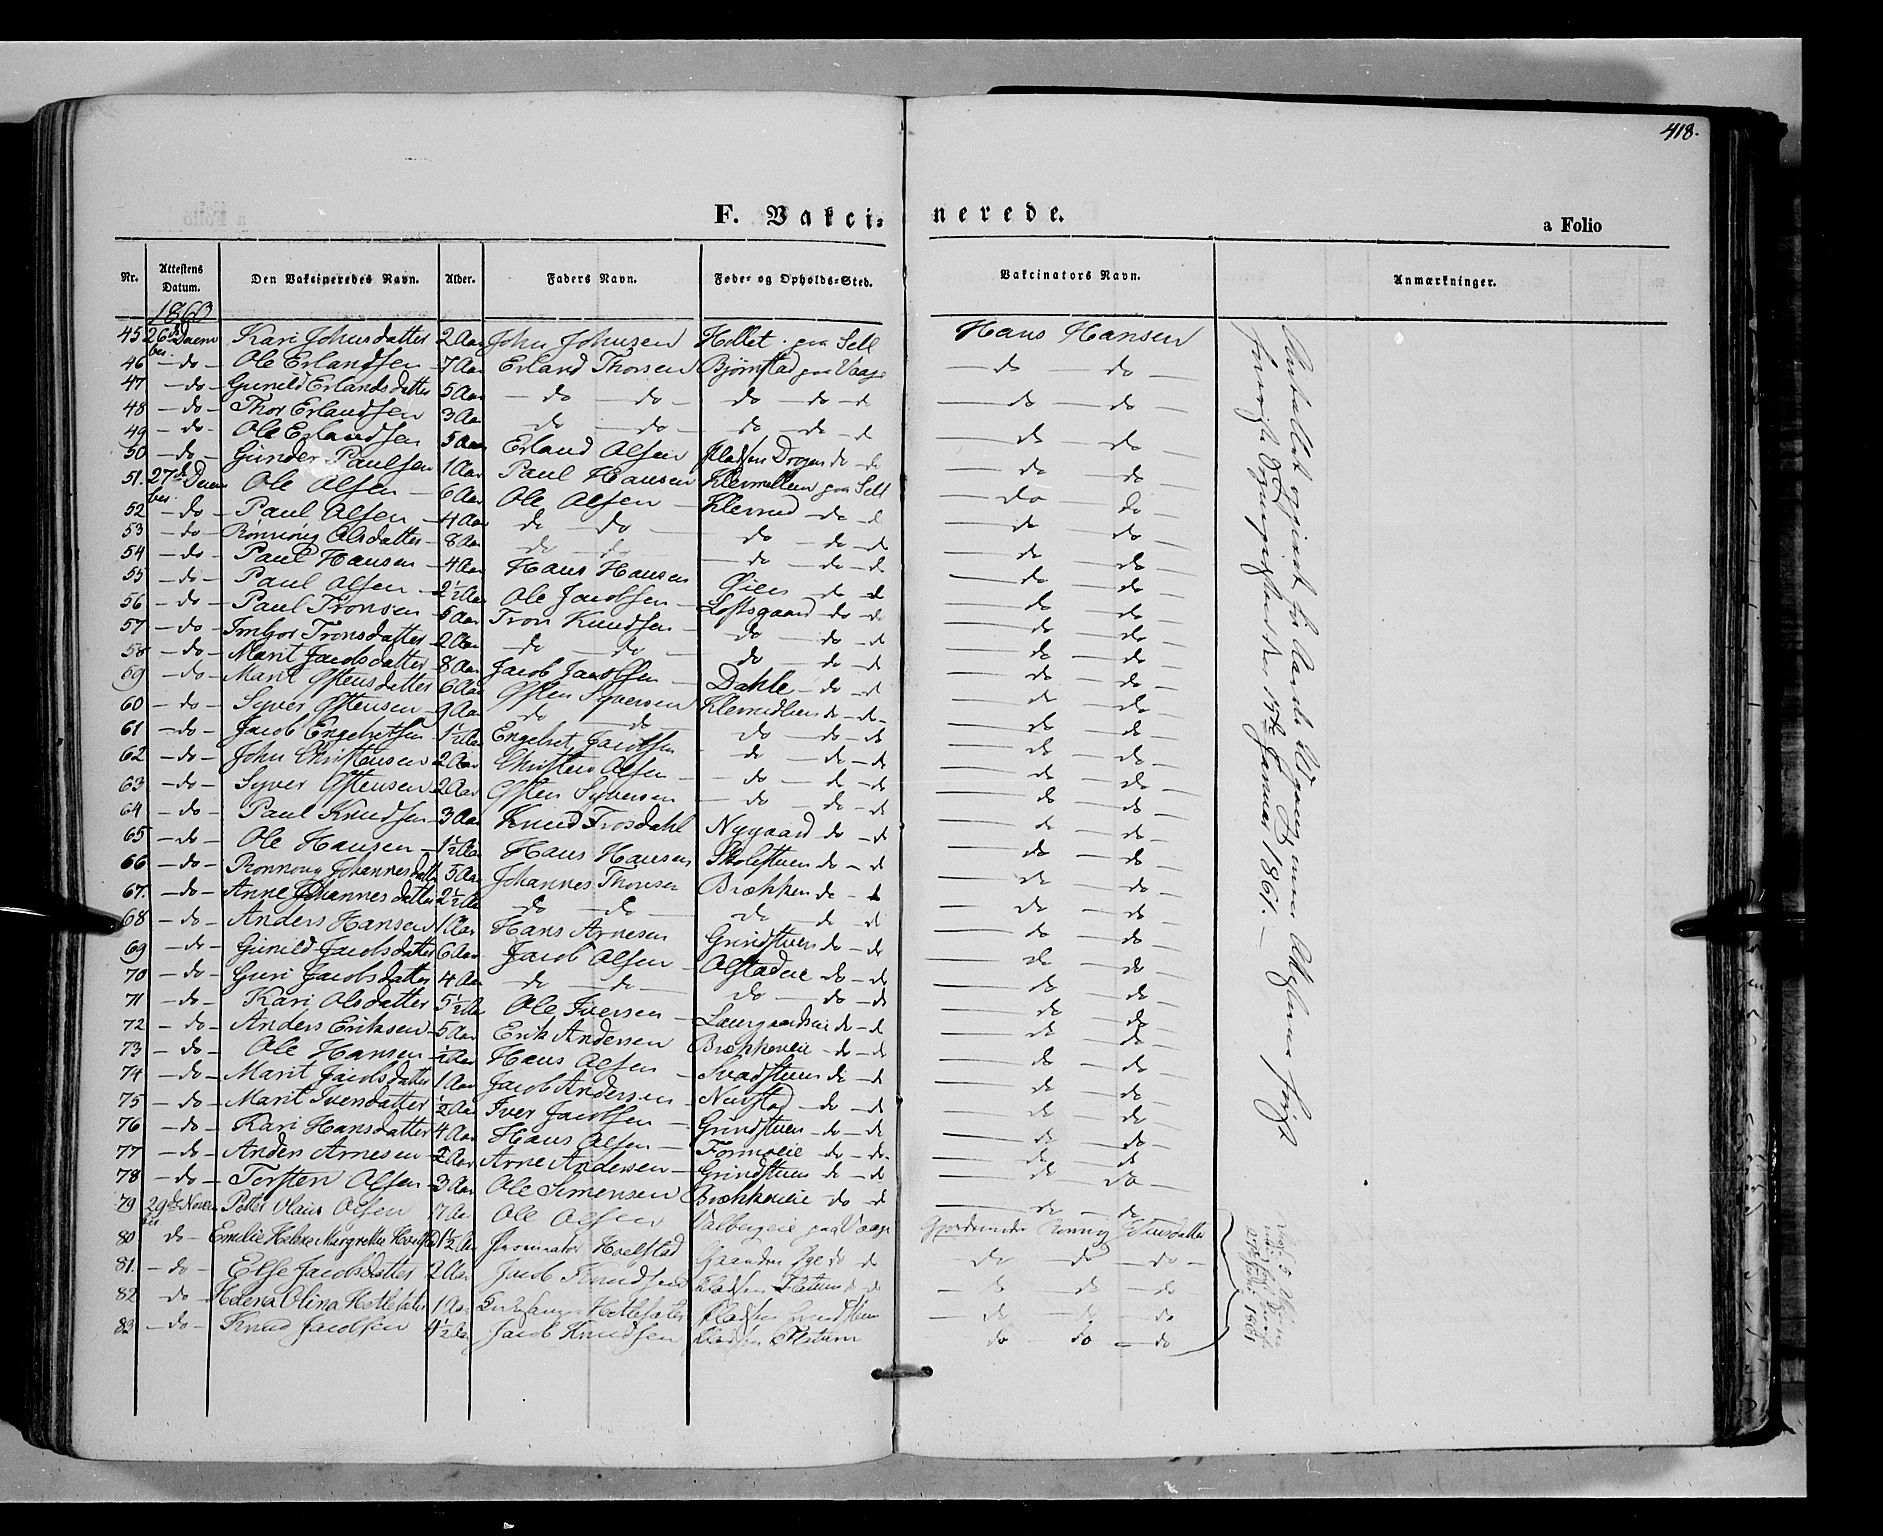 418.
F. Vakcinerede.
a Folio
Nr. Attestens Datum. Den Vaksineredes Navn. Alder. Faders Navn. Føde- og Opholds-Sted. Vakcinators Navn. Anmærkninger.
1860
45 26de December Kari Johnsdatter 2 Aar John Johnsen paa Sell Hans Hansen
46 - do - Ole Erlandsen 7 Aar Erland Thorsen Bjørnstad paa Vaage - do - do -
47 - do - Gunild Erlandsdatter 5 Aar - do - do - do - do - d - do - do -
48 - do - Thor Erlandsen 3 Aar do - do - do - do - d - do - do
49 - do - Ole Erlandsen 5 Aar Erland Olsen Pladsen do - do - do - do
50 - do - Gunder Paulsen 1 Aar Paul Hansen paa Sell do do
51. 27de December Ole Olsen 6 Aar Ole Olsen Klevrud - do - d - do - do -
52 - do - Paul Olsen 4 Aar do do do - do - d - do - do
53 - do - Rønnoug Olsdatter 8 Aar do - do - do - do - d - do - do
54 - do - Paul Hansen 4 Aar Hans Hansen Øien do - d - do - do
55 - do - Paul Olsen 2½ Aar Ole Jacobsen Loftsgaard do - do - do - do
56 - do - Paul Tronsen 5 Aar Tron Knudsen do - do - d - do - do
57 - do - Imbjor Tronsdatter 2 Aar do - do - do - do - d - do - do
58 - do - Marit Jacobsdatter 8 Aar Jacob Jacobsen Dahle - do - d - do - do
59 - do - Marit Ostensdatter 6 Aar Osten Syversen do - do - do - do
60 - do - Syver Ostensen 9 Aar do - do do - do - do - do - do
61 - do - Jacob Engebretsen 1½ Aar Engebret Jacobsen do - do - d - do - do
62 - do - John Christensen 2 Aar Christen Olsen do - do - d - do - do
63 - do - Syver Ostensen 2 Aar Osten Syversen do - do - d - do - do
64 - do - Paul Knudsen 3 Aar Knud Trosdahl Nygaard do - d - do - do
65 - do - Ole Hansen 1½ Aar Hans Hansen Skolestuen do - d - do - do
66 - do - Ronnoug Johannesdatter 5 Aar Johannes Thorsen Brækken do - d - do - do
67. - do - Anne Johannesdatter 2½ Aar do - do - do - do - d - do - do
68 - do - Anders Hansen 1 Aar Hans Arnesen Grindstuen do - d - do - do
69 - do - Gunild Jacobsdatter 6 Aar Jacob Olsen Olstadeie do - d - do - do
70 - do - Guri Jacobsdatter 4 Aar do - do - do - do - d - do - do
71 - do - Kari Olsdatter 5½ Aar Ole Iversen Laurgaardseie do - d - do - do
72 - do - Anders Eriksen 5 Aar Erik Andersen Brækkeneie - do - do do - do
73 - do - Ole Hansen Aar Hans Olsen Svadstuen do - d - do - do
74 - do - Marit Jacobsdatter 1 Aar Jacob Andersen Nustad - do - d - do - do
75 - do - Marit Iversdatter ½ Aar Iver Jacobsen Grindstuen - do - d - do - do
76 - do - Kari Hansdatter 4 Aar Hans Olsen Formoeie do - do - do - do
77 - do - Anders Arnesen 2 Aar Arne Andersen Grindstuen do - d - do - do
78 - do - Torsten Olsen 3 Aar Ole Simensen Brækkeneie do - d - do - do
79 29de November Peder Olaus Olsen Aar Ole Olsen Valbergeie paa Vaage - do - do
80 do - Emilie Helene Margrethe 1½ Aar do d do - do - do -
81. - do - Else Jacobsdatter 2 Aar Jacob Knudsen Pladsen do d - do - do
82 do - Helena Olina 1 Aar Pladsen - do - do
83 - do - Knud Jacobsen 4½ Aar Jacob Knudsen Pladsen Flatum do - do - do
Januar 1861. -
1861